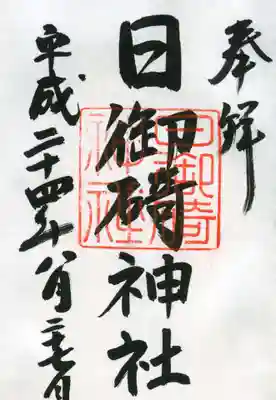 奉拝
日御碕神社
日御碕神社
平成二十四年八月二十七日